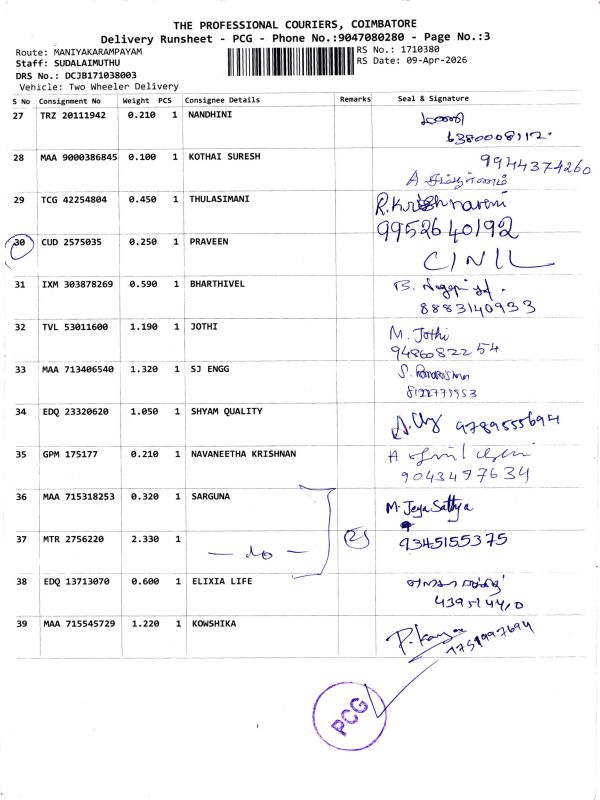 THE PROFESSIONAL COURIERS, COIMBATORE
Delivery Runsheet - PCG - Phone No.:9047080280 - Page No.:3
Route: MANIYAKARAMPAYAM
RS No.: 1710380
Staff: SUDALAIMUTHU
RS Date: 09-Apr-2026
DRS No.: DCJB171038003
Vehicle: Two Wheeler Delivery
S No Consignment No Weight PCS Consignee Details Remarks Seal & Signature
27 TRZ 20111942 0.210 1 NANDHINI
6380008112
28 MAA 9000386845 0.100 1 KOTHAI SURESH
9944374260
A
29 TCG 42254804 0.450 1 THULASIMANI R.Krishnaveni
9952640192
30 CUD 2575035 0.250 1 PRAVEEN
CINIL
31 IXM 303878269 0.590 1 BHARTHIVEL B.
8883140933
32 TVL 53011600 1.190 1 JOTHI M. Jothi
9486082254
33 MAA 713406540 1.320 1 SJ ENGG S.
8122773953
34 EDQ 23320620 1.050 1 SHYAM QUALITY 9789555694
35 GPM 175177 0.210 1 NAVANEETHA KRISHNAN A
9043497634
36 MAA 715318253 0.320 1 SARGUNA M. Jeya Sathya
37 MTR 2756220 2.330 1 — do — (2) 9345155375
38 EDQ 13713070 0.600 1 ELIXIA LIFE
39 MAA 715545729 1.220 1 KOWSHIKA P.
PCG